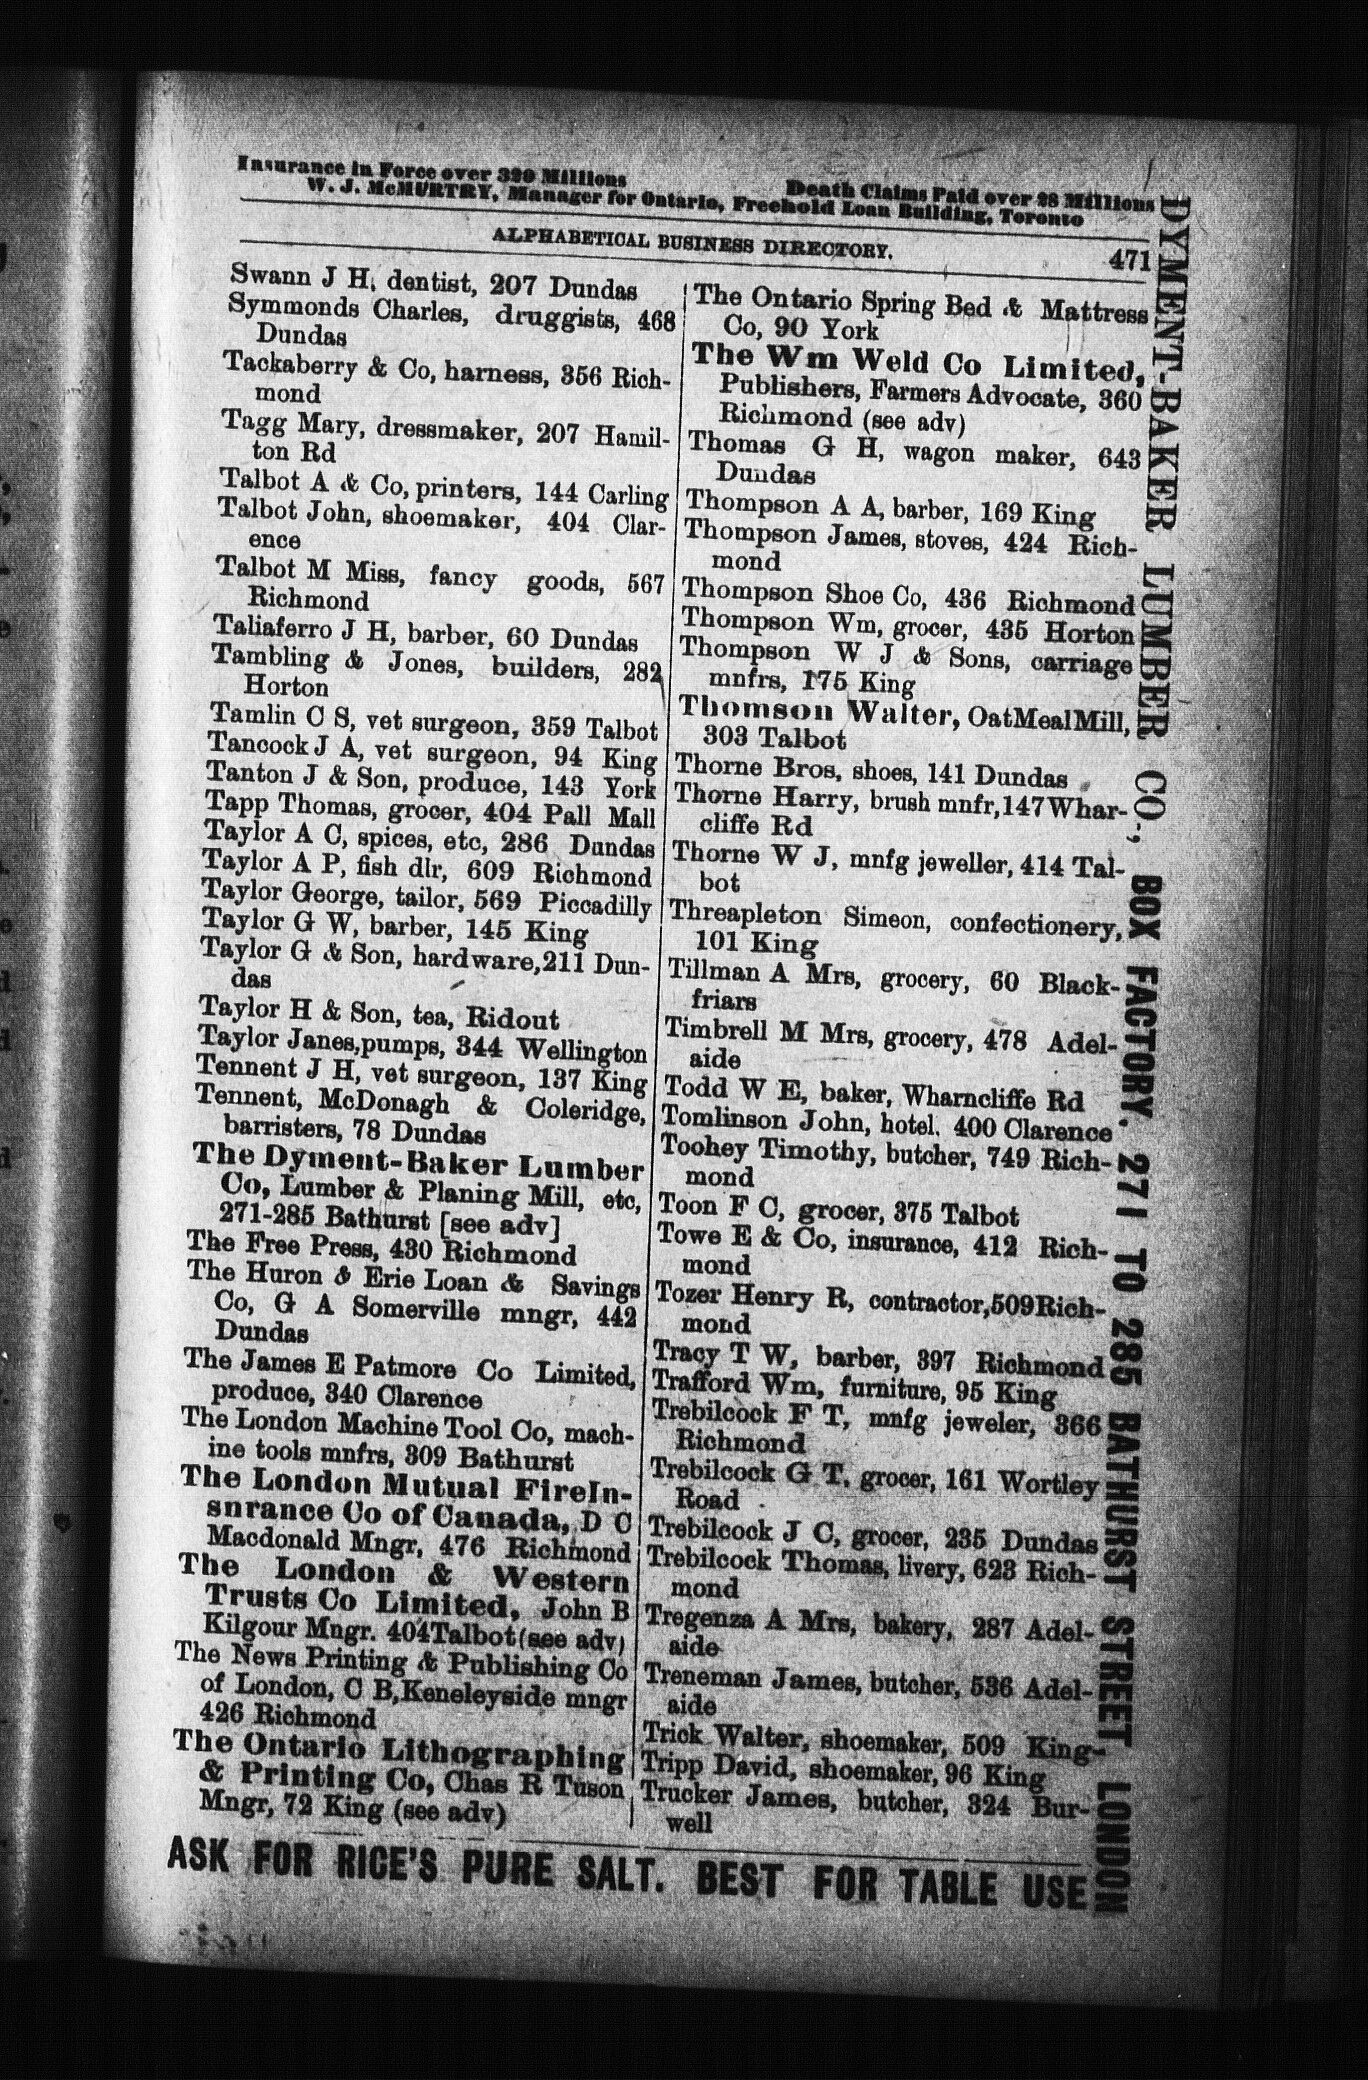 Insurance in Force over 320 Millions
Death Claims Paid over 28 Millions
W. J. McMURTRY, Manager for Ontario, Freehold Loan Building, Toronto
ALPHABETICAL BUSINESS DIRECTORY.
471
Swann J H, dentist, 207 Dundas
Symmonds Charles, druggists, 468
Dundas
Tackaberry & Co, harness, 356 Rich-
mond
Tagg Mary, dressmaker, 207 Hamil-
ton Rd
Talbot A & Co, printers, 144 Carling
Talbot John, shoemaker, 404 Clar-
ence
Talbot M Miss, fancy goods, 567
Richmond
Taliaferro J H, barber, 60 Dundas
Tambling & Jones, builders, 282
Horton
Tamlin C S, vet surgeon, 359 Talbot
Tancock J A, vet surgeon, 94 King
Tanton J & Son, produce, 143 York
Tapp Thomas, grocer, 404 Pall Mall
Taylor A C, spices, etc, 286 Dundas
Taylor A P, fish dlr, 609 Richmond
Taylor George, tailor, 569 Piccadilly
Taylor G W, barber, 145 King
Taylor G & Son, hardware,211 Dun-
das
Taylor H & Son, tea, Ridout
Taylor Janes,pumps, 344 Wellington
Tennent J H, vet surgeon, 137 King
Tennent, McDonagh & Coleridge,
barristers, 78 Dundas
The Dyment-Baker Lumber
Co, Lumber & Planing Mill, etc,
271-285 Bathurst [see adv]
The Free Press, 430 Richmond
The Huron & Erie Loan & Savings
Co, G A Somerville mngr, 442
Dundas
The James E Patmore Co Limited,
produce, 340 Clarence
The London Machine Tool Co, mach-
ine tools mnfrs, 309 Bathurst
The London Mutual FireIn-
surance Co of Canada, D C
Macdonald Mngr, 476 Richmond
The London & Western
Trusts Co Limited, John B
Kilgour Mngr. 404Talbot(see adv)
The News Printing & Publishing Co
of London, C B,Keneleyside mngr
426 Richmond
The Ontario Lithographing
& Printing Co, Chas R Tuson
Mngr, 72 King (see adv)
The Ontario Spring Bed & Mattress
Co, 90 York
The Wm Weld Co Limited,
Publishers, Farmers Advocate, 360
Richmond (see adv)
Thomas G H, wagon maker, 643
Dundas
Thompson A A, barber, 169 King
Thompson James, stoves, 424 Rich-
mond
Thompson Shoe Co, 436 Richmond
Thompson Wm, grocer, 435 Horton
Thompson W J & Sons, carriage
mnfrs, 175 King
Thomson Walter, OatMealMill,
303 Talbot
Thorne Bros, shoes, 141 Dundas
Thorne Harry, brush mnfr,147Whar-
cliffe Rd
Thorne W J, mnfg jeweller, 414 Tal-
bot
Threapleton Simeon, confectionery,
101 King
Tillman A Mrs, grocery, 60 Black-
friars
Timbrell M Mrs, grocery, 478 Adel-
aide
Todd W E, baker, Wharncliffe Rd
Tomlinson John, hotel, 400 Clarence
Toohey Timothy, butcher, 749 Rich-
mond
Toon F C, grocer, 375 Talbot
Towe E & Co, insurance, 412 Rich-
mond
Tozer Henry R, contractor,509Rich-
mond
Tracy T W, barber, 397 Richmond
Trafford Wm, furniture, 95 King
Trebilcock F T, mnfg jeweler, 366
Richmond
Trebilcock G T, grocer, 161 Wortley
Road
Trebilcock J C, grocer, 235 Dundas
Trebilcock Thomas, livery, 623 Rich-
mond
Tregenza A Mrs, bakery, 287 Adel-
aide
Treneman James, butcher, 536 Adel-
aide
Trick Walter, shoemaker, 509 King
Tripp David, shoemaker, 96 King
Trucker James, butcher, 324 Bur-
well
DYMENT-BAKER LUMBER CO., BOX FACTORY. 271 TO 285 BATHURST STREET LONDON
ASK FOR RICE'S PURE SALT. BEST FOR TABLE USE